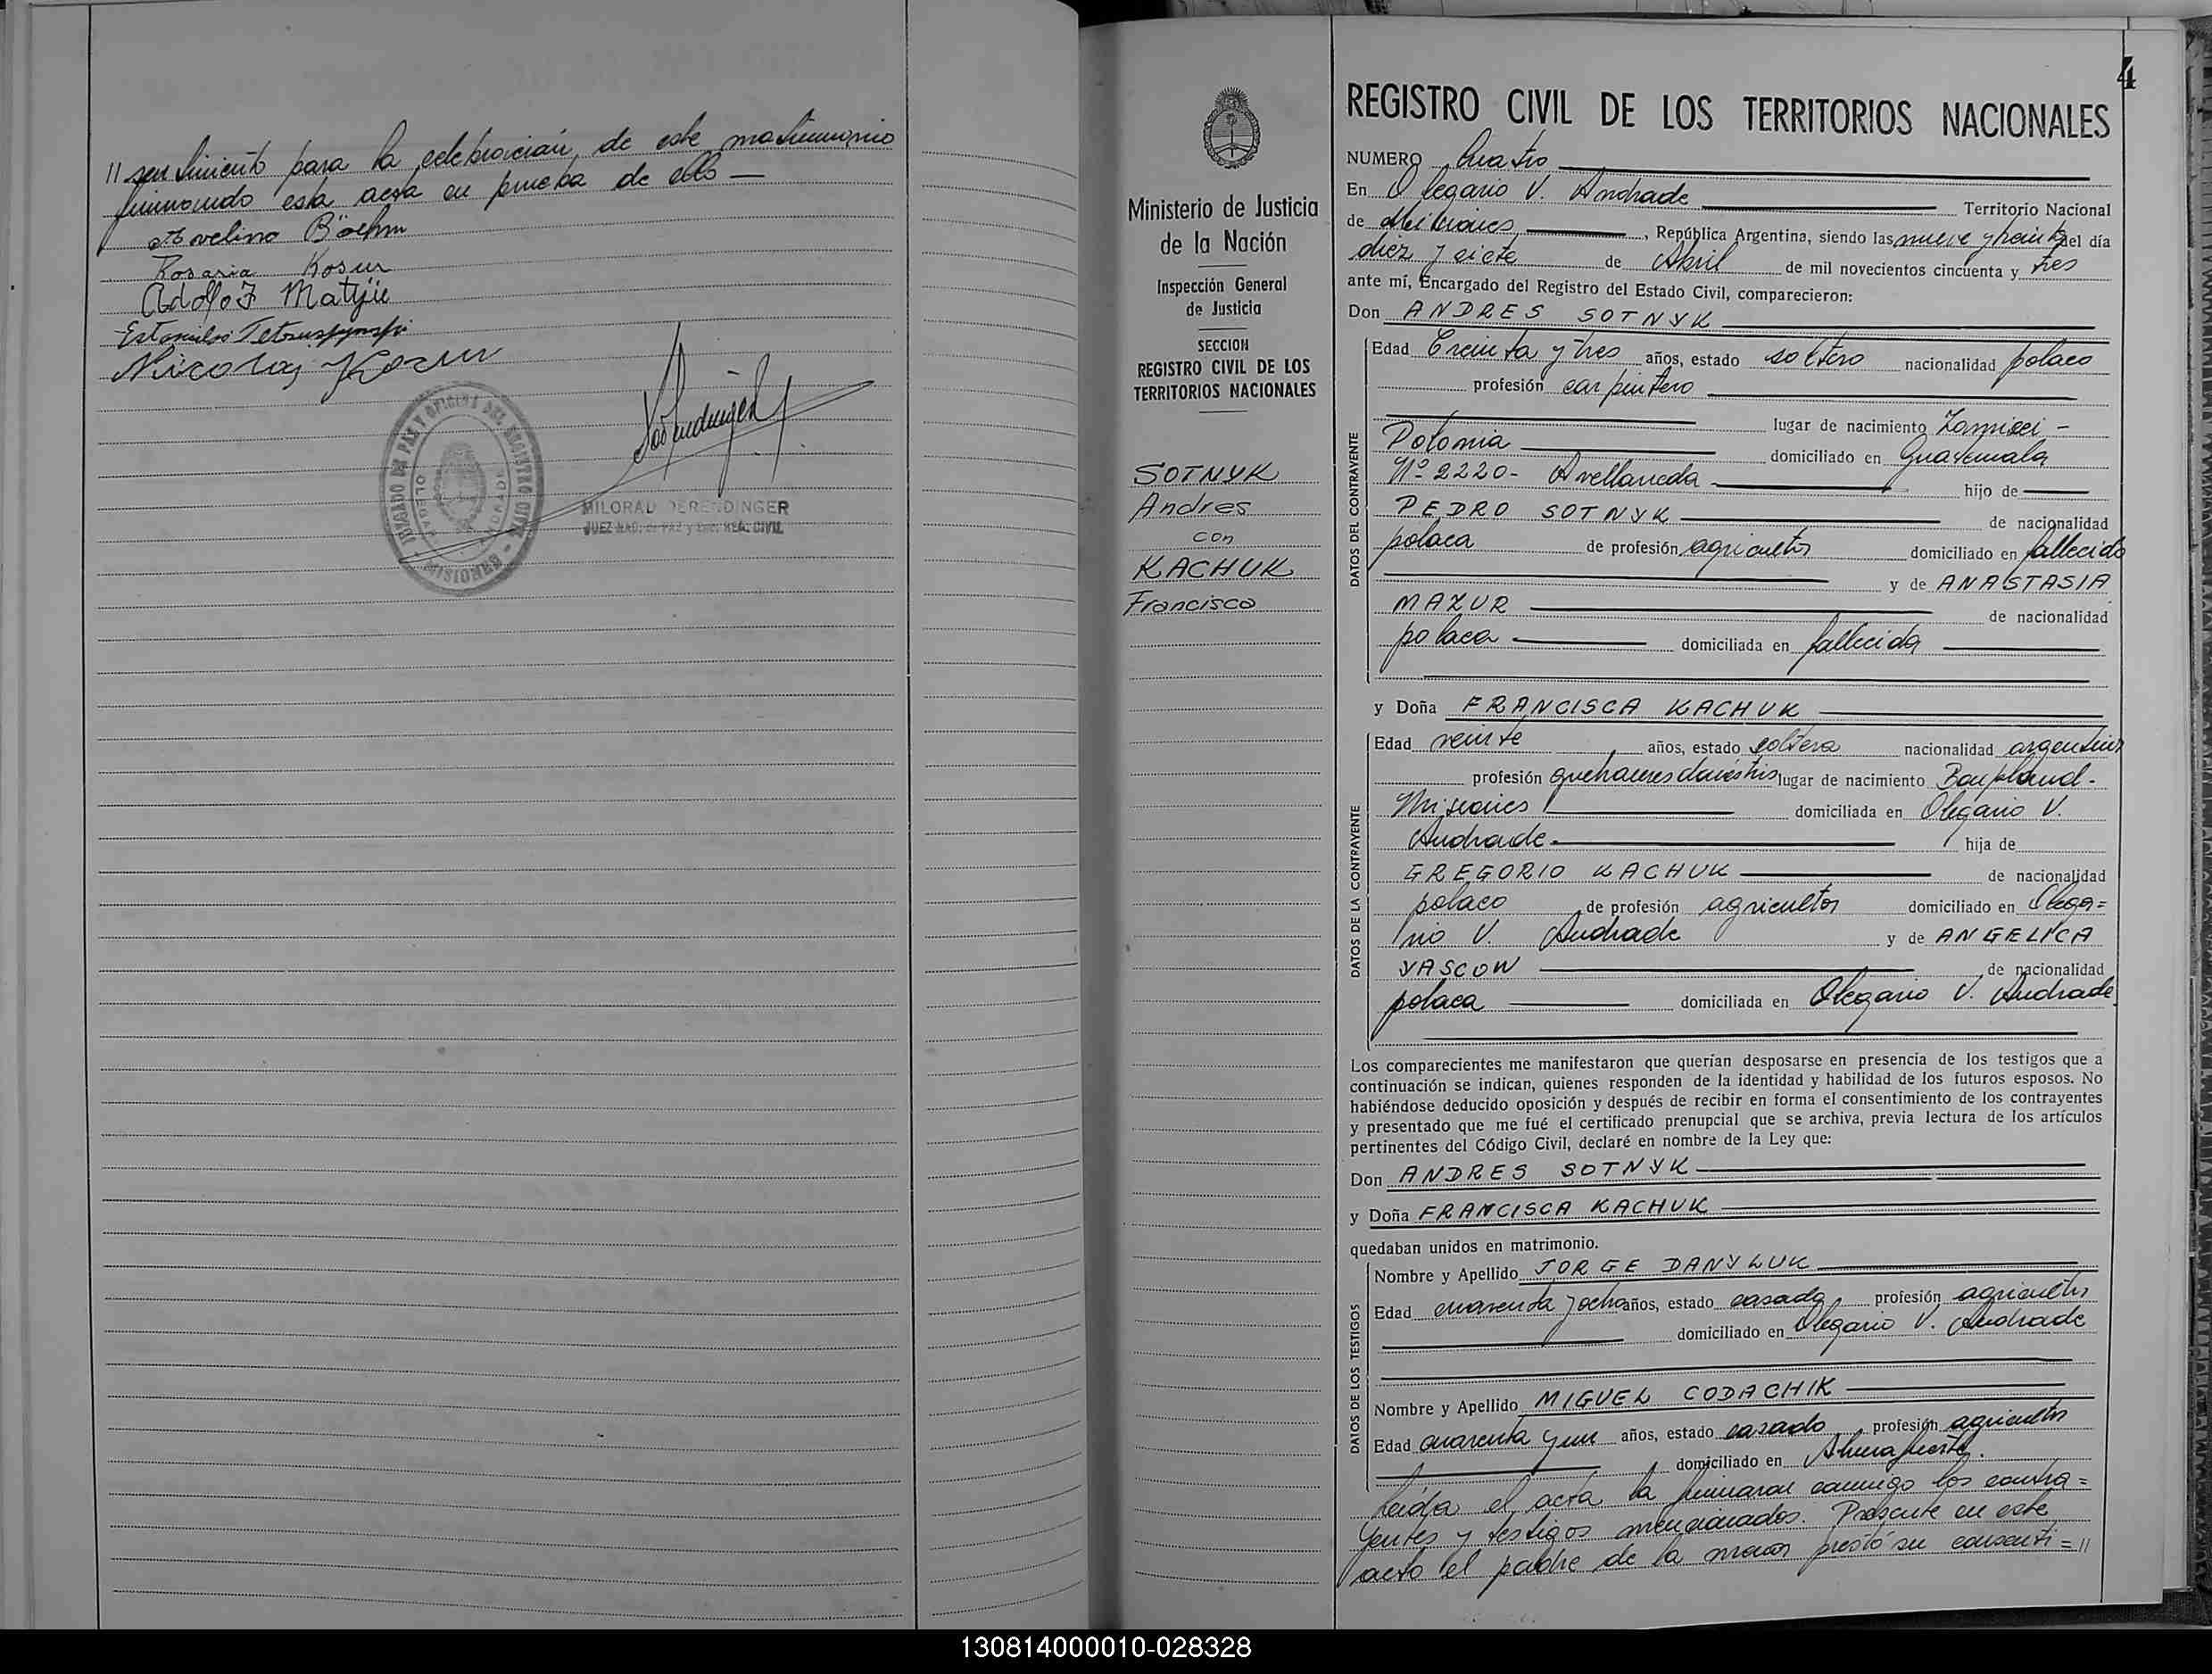 // sentimiento para la celebración de este matrimonio
firmando esta acta en prueba de ello —
Avelino Böehm
Rosaria Kosur
Adolfo F Matyje
Nicolas Kosur
JUZGADO DE PAZ Y OFICINA DEL REGISTRO CIVIL
MILORAD DERENDINGER
JUEZ NAC. DE PAZ y Enc. REG. CIVIL
Ministerio de Justicia
de la Nación
Inspección General
de Justicia
SECCION
REGISTRO CIVIL DE LOS
TERRITORIOS NACIONALES
SOTNYK
Andres
con
KACHUK
Francisca
4
REGISTRO CIVIL DE LOS TERRITORIOS NACIONALES
NUMERO Cuatro
En Olegario V. Andrade Territorio Nacional
de Misiones, República Argentina, siendo las nueve y treinta del día
diez y siete de Abril de mil novecientos cincuenta y tres
ante mí, Encargado del Registro del Estado Civil, comparecieron:
Don ANDRES SOTNYK
DATOS DEL CONTRAVENTE
Edad Treinta y tres años, estado soltero nacionalidad polaco
profesión carpintero
lugar de nacimiento
Polonia domiciliado en Guatemala
Nº 2220- Avellaneda hijo de
PEDRO SOTNYK de nacionalidad
polaca de profesión agricultor domiciliado en fallecido
y de ANASTASIA
MAZUR de nacionalidad
polaca domiciliada en fallecida
y Doña FRANCISCA KACHUK
DATOS DE LA CONTRAVENTE
Edad veinte años, estado soltera nacionalidad argentina
profesión quehaceres domésticos lugar de nacimiento Bonpland-
Misiones domiciliada en Olegario V.
Andrade- hija de
GREGORIO KACHUK de nacionalidad
polaco de profesión agricultor domiciliado en Olega=
rio V. Andrade y de ANGELICA
YASCOW de nacionalidad
polaca domiciliada en Olegario V. Andrade
Los comparecientes me manifestaron que querían desposarse en presencia de los testigos que a
continuación se indican, quienes responden de la identidad y habilidad de los futuros esposos. No
habiéndose deducido oposición y después de recibir en forma el consentimiento de los contrayentes
y presentado que me fué el certificado prenupcial que se archiva, previa lectura de los artículos
pertinentes del Código Civil, declaré en nombre de la Ley que:
Don ANDRES SOTNYK
y Doña FRANCISCA KACHUK
quedaban unidos en matrimonio.
DATOS DE LOS TESTIGOS
Nombre y Apellido JORGE DANYLUK
Edad cuarenta y ocho años, estado casado profesión agricultor
domiciliado en Olegario V. Andrade
Nombre y Apellido MIGUEL CODACHIK
Edad cuarenta y un años, estado casado profesión agricultor
domiciliado en Almafuerte.
Leída el acta la firmaron conmigo los contra=
yentes y testigos mencionados. Presente en este
acto el padre de la menor prestó su consenti=//
130814000010-028328